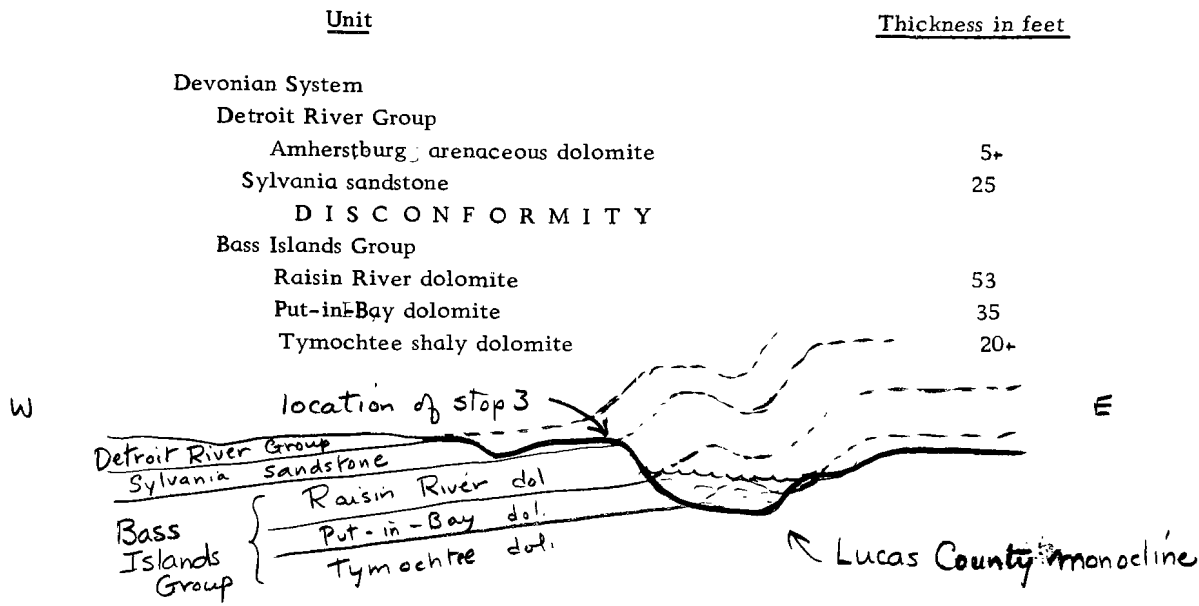 Unit Thickness in feet
Devonian System
Detroit River Group
Amherstburg arenaceous dolomite 5+
Sylvania sandstone 25
D I S C O N F O R M I T Y
Bass Islands Group
Raisin River dolomite 53
Put-in-Bay dolomite 35
Tymochtee shaly dolomite 20+
W location of stop 3 E
Detroit River Group
Sylvania sandstone
Raisin River dol
Put-in-Bay dol.
Tymochtee dol.
Bass
Islands
Group
Lucas County monocline